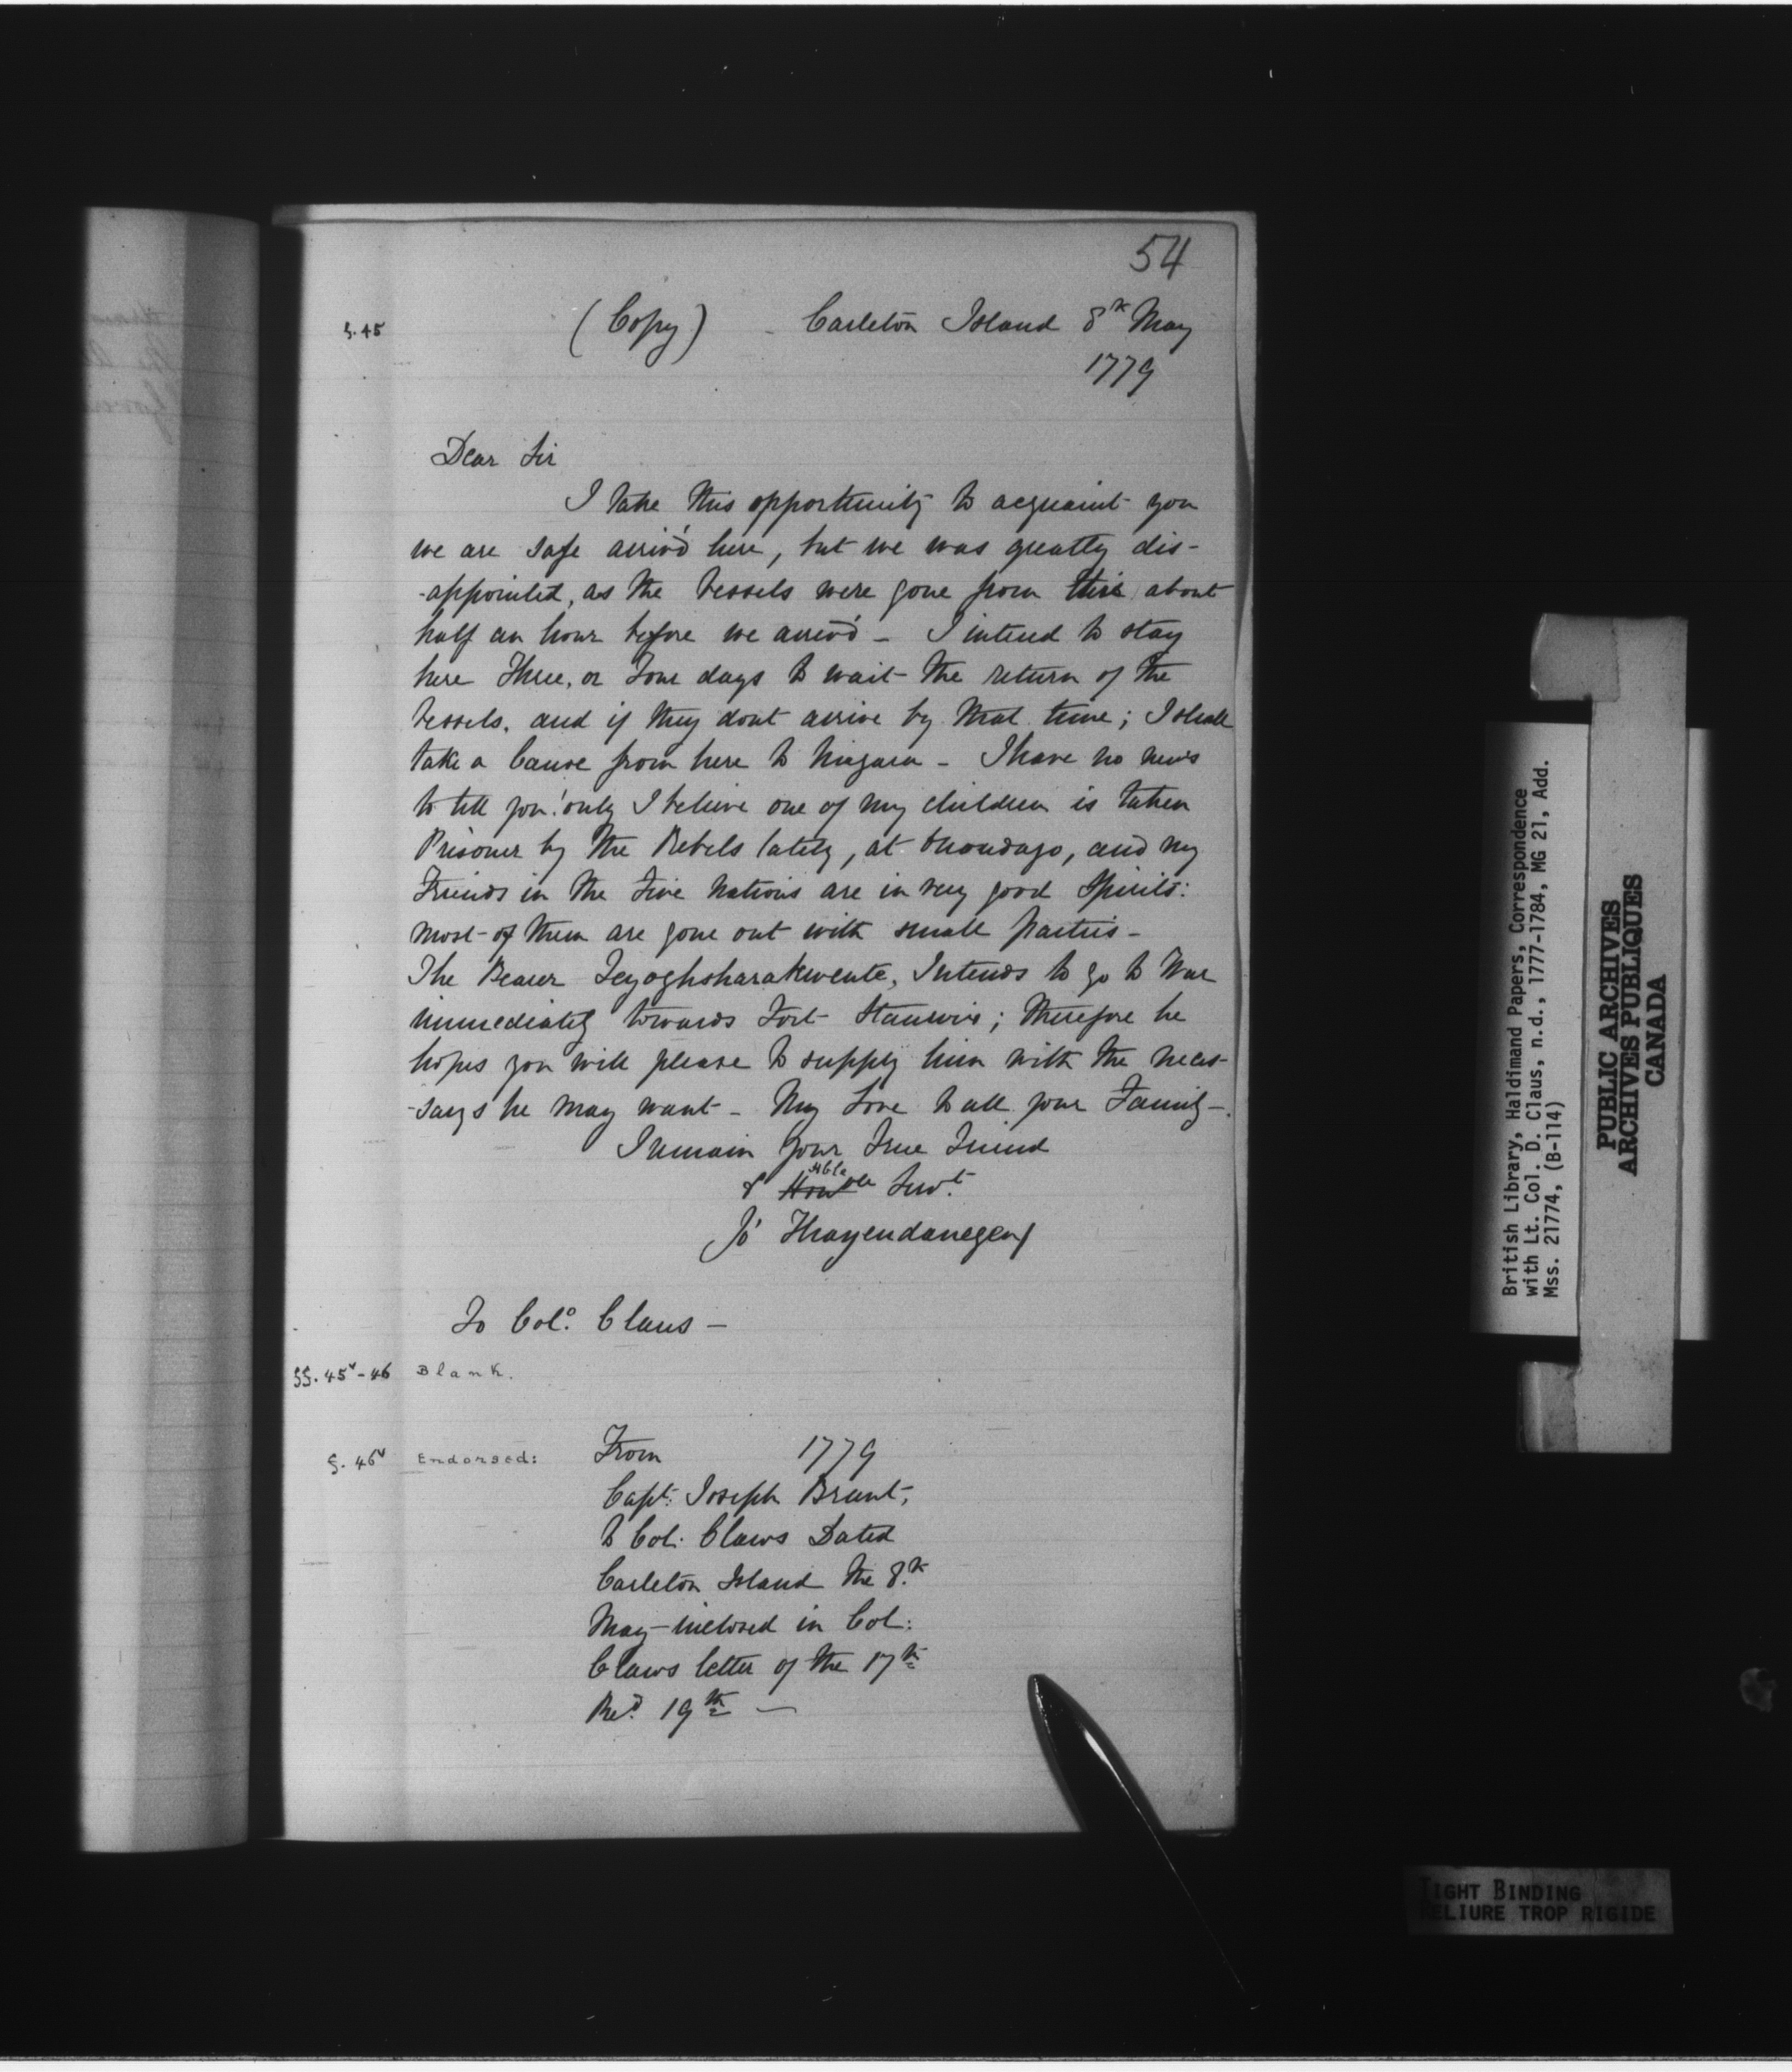 54
f. 45
(Copy) - Carleton Island 8th May
1779
Dear Sir
I take this opportunity to acquaint you
we are safe arriv'd here, but we was greatly dis-
-appointed, as the Vessels were gone from this about
half an hour before we arriv'd - I intend to stay
here Three, or Four days to wait the return of the
Vessels, and if they dont arrive by that time; I shall
take a Canoe from here to Niagara - I have no news
to tell you! only I believe one of my children is taken
Prisoner by the Rebels lately, at Onondago, and my
Friends in the Five Nations are in very good Spirits:
most of them are gone out with small parties -
The Bearer Teyoghsharakwente, Intends to go to War
immediately towards Fort Stanwix; therefore he
hopes you will please to supply him with the neces-
-sarys he may want - My Love to all your Family -.
I remain Your True Friend
& Hble Servt.
Jos Thayendanegea
To Colo. Claus -
ff. 45v-46 Blank.
f. 46v Endorsed: From 1779
Capt: Joseph Brant,
to Col: Claws Dated
Carleton Island the 8.th
May - inclosed in Col:
Claws letter of the 17th
Red. 19th -
British Library, Haldimand Papers, Correspondence
with Lt. Col. D. Claus, n.d., 1777-1784, MG 21, Add.
Mss. 21774, (B-114)
PUBLIC ARCHIVES
ARCHIVES PUBLIQUES
CANADA
TIGHT BINDING
RELIURE TROP RIGIDE